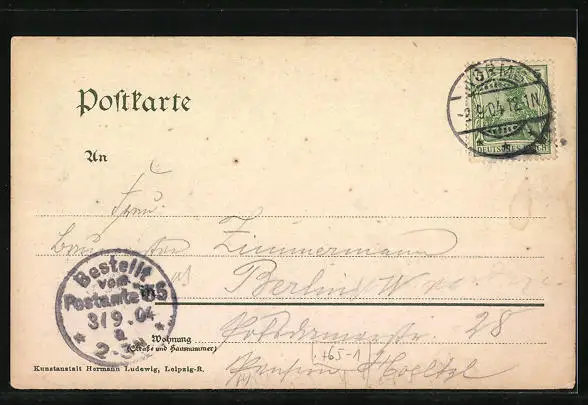 Postkarte
WORMS
2.9.04.12-1N
DEUTSCHES REICH
An
Frau
Zimmermann
Berlin W
Bestellt
vom
Postamte
3/9.04
2-3
Potsdamerstr 28
Wohnung
(Straße und Hausnummer)
+65-1
Pension
Kunstanstalt Hermann Ludewig, Leipzig-R.